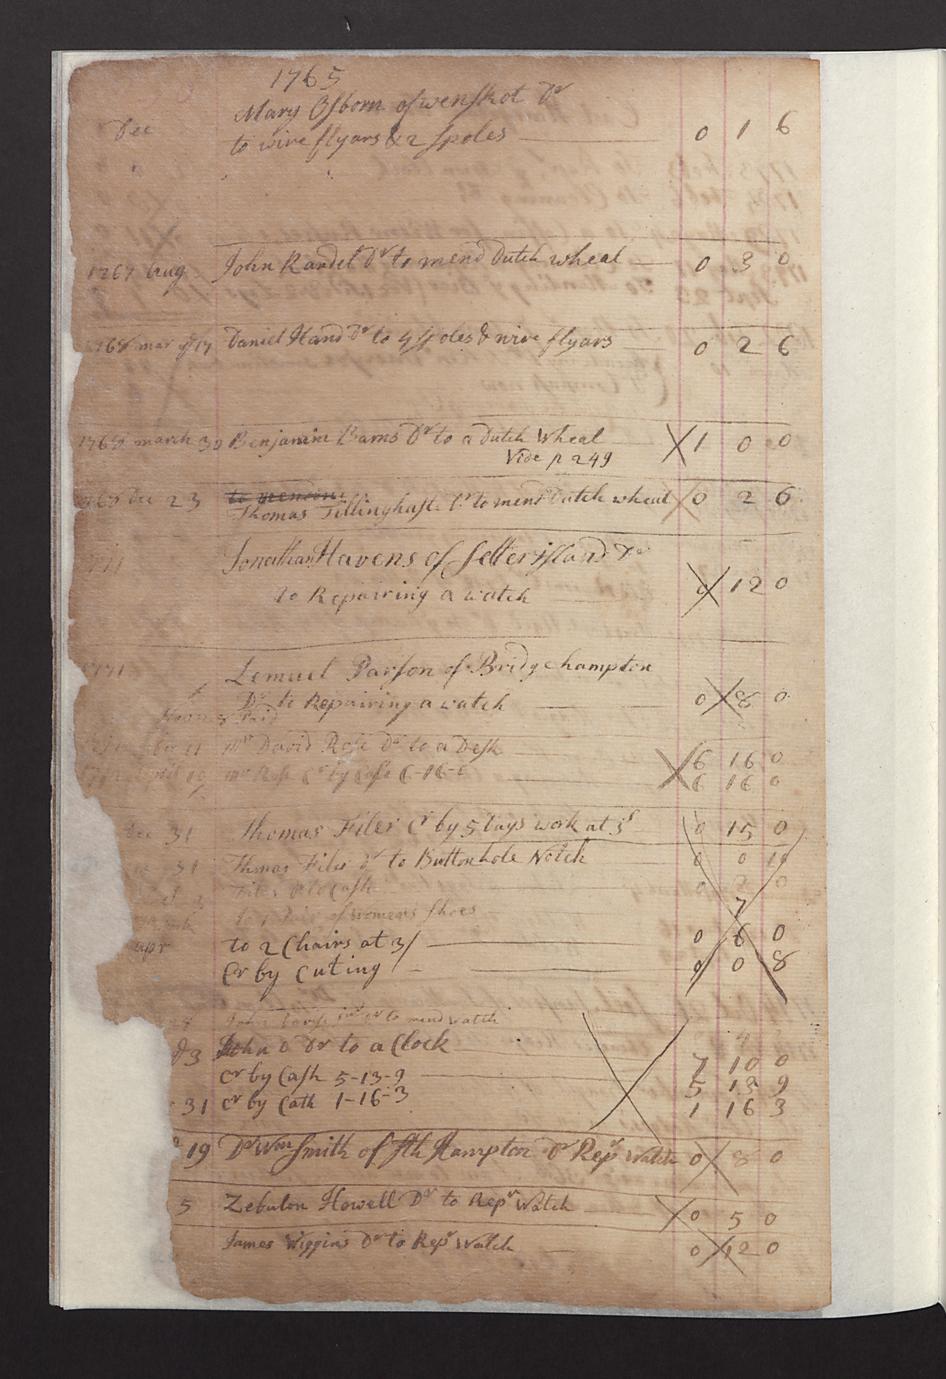 1765
Mary Osborn of wenskot Dr
Dec to wire flyars & 2 spoles 0 1 6
1767 Aug John Randel Dr to mend Dutch wheal 0 3 0
1768 mar 17 Daniel Hand Dr to 4 spoles & wire flyars 0 2 6
1768 march 30 Benjamin Barns Dr to a Dutch Wheal 1 0 0
Vide p 249
Dec 23 Thomas Tillinghast Dr to mend Dutch wheal 0 2 6
Jonathan Havens of Selterisland Dr
to Repairing a watch 0 12 0
1771 Lemuel Parson of Bridgehampton
Dr to Repairing a watch 0 8 0
Mr David Rose Dr to a Desk 6 16 0
April 19 Mr Rose Cr by Cash 6-16-0 6 16 0
Dec 31 Thomas Filer Cr by 5 Days work at 3s 0 15 0
31 Thomas Filer Dr to Buttonhole Notch 0 0 10
Filer Dr to Cash 0 2 0
to 1 Pair of womens shoes 7
apr to 2 Chairs at 3/ 0 6 0
Cr by Cuting 0 0 8
to mend watch
23 John D Dr to a Clock 7 10 0
Cr by Cash 5-13-9 5 13 9
31 Cr by Cash 1-16-3 1 16 3
19 Dr Wm Smith of Sth Hampton Dr Repr Watch 0 8 0
5 Zebulon Howell Dr to Repr Watch 0 5 0
James Wiggins Dr to Repr Watch 0 12 0